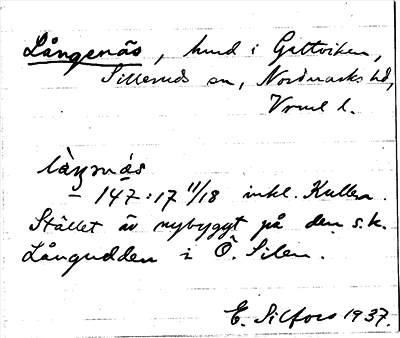 Långenäs, hmd i Gattviken,
Sillerud sn, Nordmarks hd,
Vrml l.
làŋnä́s
— 147:17 11/18 inkl. Kullen.
Stället är nybyggt på den s.k.
Långudden i Ö. Silen.
E. Silfors 1937.